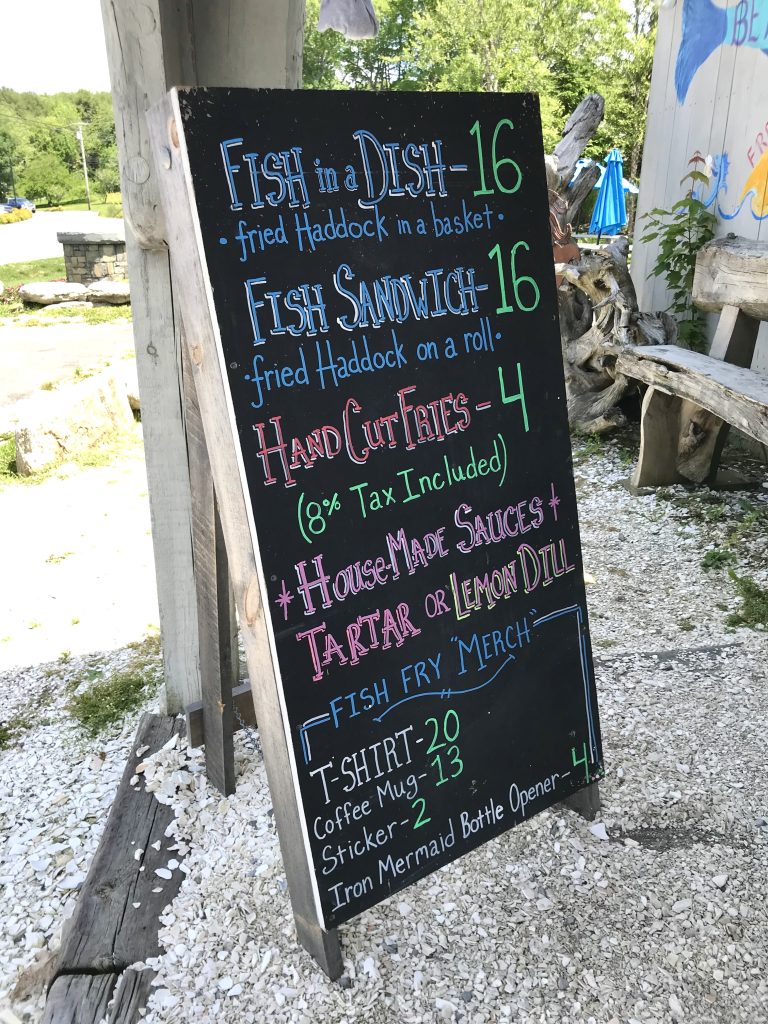 FISH in a DISH - 16
• fried Haddock in a basket •
FISH SANDWICH - 16
• fried Haddock on a roll •
HAND CUT FRIES - 4
(8% Tax Included)
* HOUSE-MADE SAUCES *
TARTAR OR LEMON DILL
FISH FRY "MERCH"
T-SHIRT - 20
Coffee Mug - 13
Sticker - 2
Iron Mermaid Bottle Opener - 4